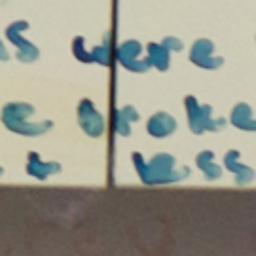 s were
e broke
t less